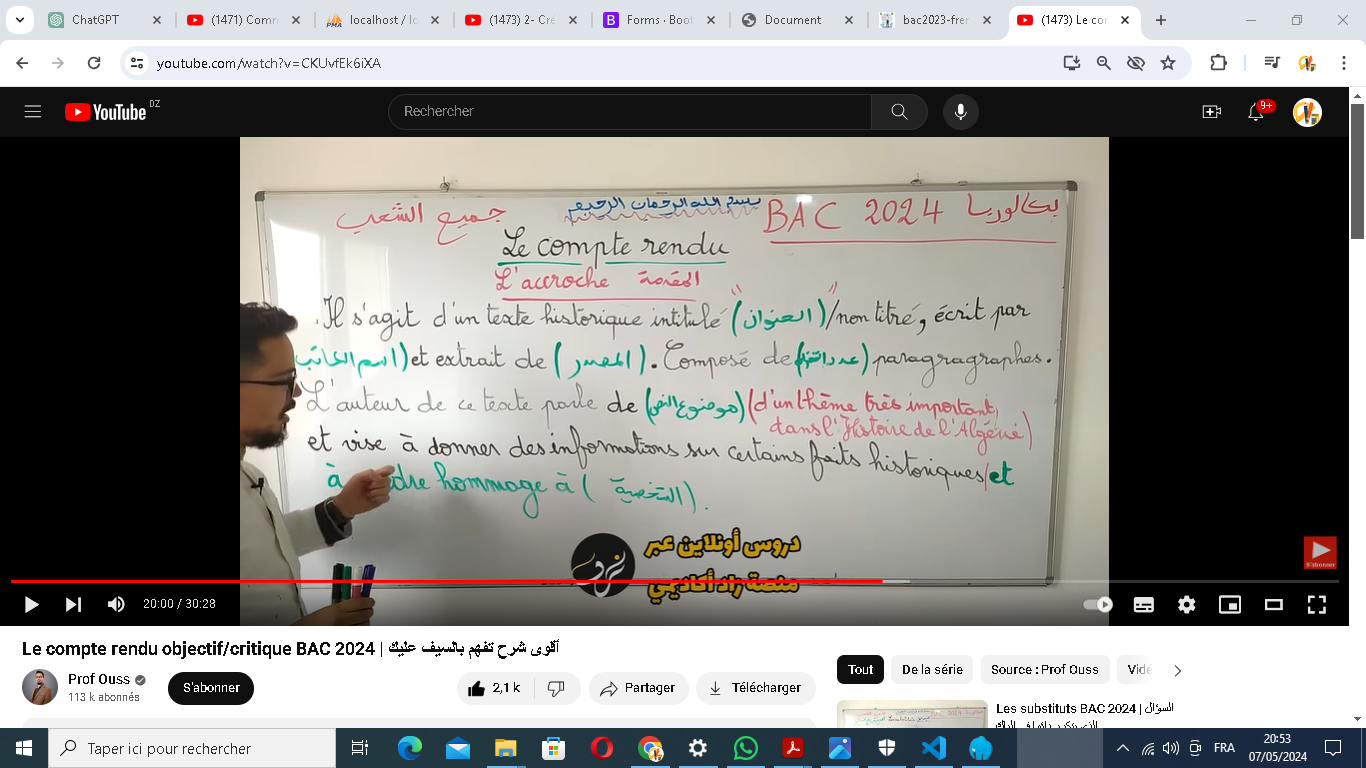 ChatGPT
(1471) Comm
localhost / lo
(1473) 2- Cré
Forms · Boot
Document
bac2023-fren
(1473) Le cor
youtube.com/watch?v=CKUvfEk6iXA
YouTube DZ
Rechercher
9+
جميع الشعب
بسم الله الرحمان الرحيم
BAC 2024 بكالوريا
Le compte rendu
L'accroche المقدمة
Il s'agit d'un texte historique intitulé "(العنوان)"/non titré, écrit par
(اسم الكاتب) et extrait de (المصدر). Composé de (عدد) paragragraphes.
L'auteur de ce texte parle de (موضوع النص) (d'un thème très important
dans l'Histoire de l'Algérie)
et vise à donner des informations sur certains faits historiques/et
à hommage à (الشخصية).
دروس أونلاين عبر
منصة زاد أكاديمي
S'abonner
20:00 / 30:28
Le compte rendu objectif/critique BAC 2024 | أقوى شرح تفهم بالسيف عليك
Prof Ouss
113 k abonnés
S'abonner
2,1 k
Partager
Télécharger
Tout
De la série
Source : Prof Ouss
Vidé
Les substituts BAC 2024 | السؤال
Taper ici pour rechercher
FRA
20:53
07/05/2024